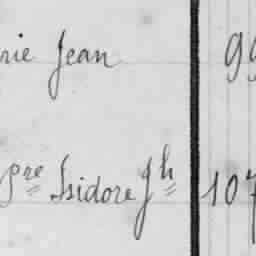 rie Jean 99
Pre Isidore Jh 107